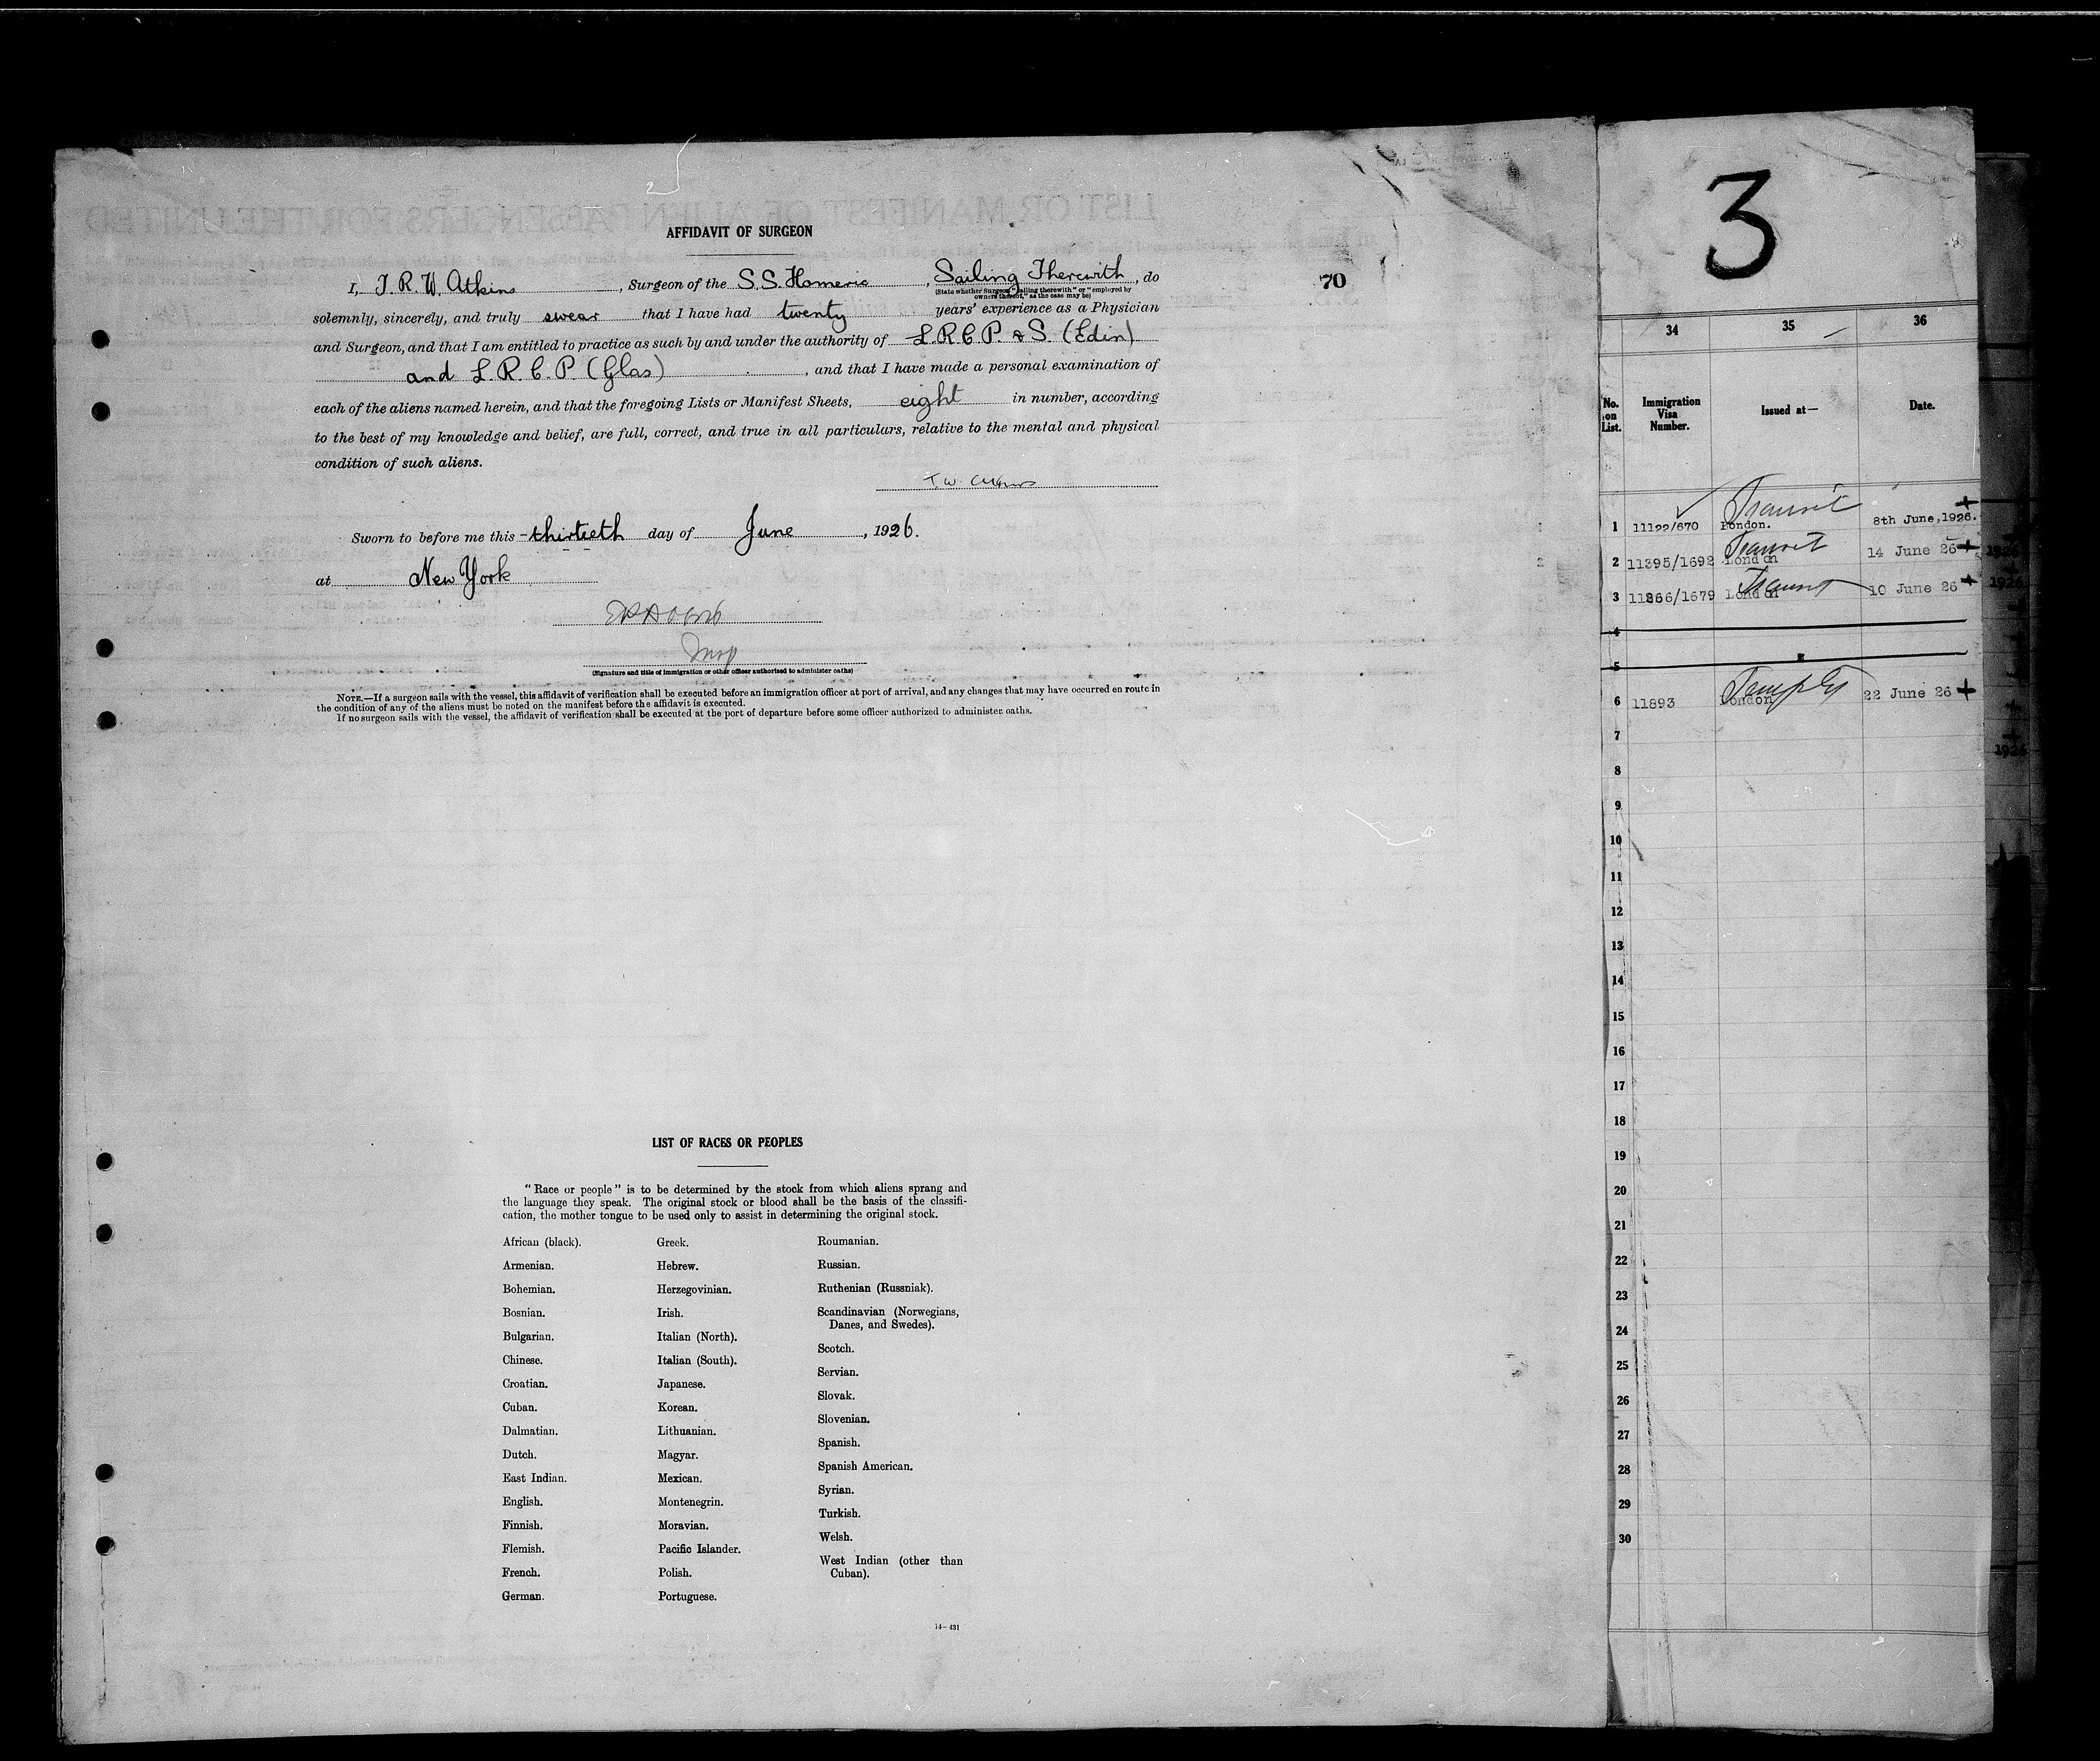 AFFIDAVIT OF SURGEON
I, T. R. W. Atkins, Surgeon of the S.S. Homeric, Sailing Therewith, do
(State whether Surgeon "sailing therewith" or "employed by
owners thereof," as the case may be)
solemnly, sincerely, and truly swear that I have had twenty years' experience as a Physician
and Surgeon, and that I am entitled to practice as such by and under the authority of L.R.C.P. & S. (Edin)
and L. R. C. P (Glas), and that I have made a personal examination of
each of the aliens named herein, and that the foregoing Lists or Manifest Sheets, eight in number, according
to the best of my knowledge and belief, are full, correct, and true in all particulars, relative to the mental and physical
condition of such aliens.
Sworn to before me this thirtieth day of June, 1926.
at New York
Insp
(Signature and title of immigration or other officer authorized to administer oaths)
NOTE.—If a surgeon sails with the vessel, this affidavit of verification shall be executed before an immigration officer at port of arrival, and any changes that may have occurred en route in
the condition of any of the aliens must be noted on the manifest before the affidavit is executed.
If no surgeon sails with the vessel, the affidavit of verification shall be executed at the port of departure before some officer authorized to administer oaths.
70
LIST OF RACES OR PEOPLES
"Race or people" is to be determined by the stock from which aliens sprang and
the language they speak. The original stock or blood shall be the basis of the classifi-
cation, the mother tongue to be used only to assist in determining the original stock.
African (black).
Armenian.
Bohemian.
Bosnian.
Bulgarian.
Chinese.
Croatian.
Cuban.
Dalmatian.
Dutch.
East Indian.
English.
Finnish.
Flemish.
French.
German.
Greek.
Hebrew.
Herzegovinian.
Irish.
Italian (North).
Italian (South).
Japanese.
Korean.
Lithuanian.
Magyar.
Mexican.
Montenegrin.
Moravian.
Pacific Islander.
Polish.
Portuguese.
Roumanian.
Russian.
Ruthenian (Russniak).
Scandinavian (Norwegians,
Danes, and Swedes).
Scotch.
Servian.
Slovak.
Slovenian.
Spanish.
Spanish American.
Syrian.
Turkish.
Welsh.
West Indian (other than
Cuban).
14—431
3
34 35 36
No. on List. Immigration Visa Number. Issued at— Date.
Transit
1 11122/670 London. 8th June, 1926.
Transit
2 11395/1692 London 14 June 26
Transit
3 11266/1679 London 10 June 26
4
5
6 11893 London 22 June 26
7
8
9
10
11
12
13
14
15
16
17
18
19
20
21
22
23
24
25
26
27
28
29
30
1926
1926
1926